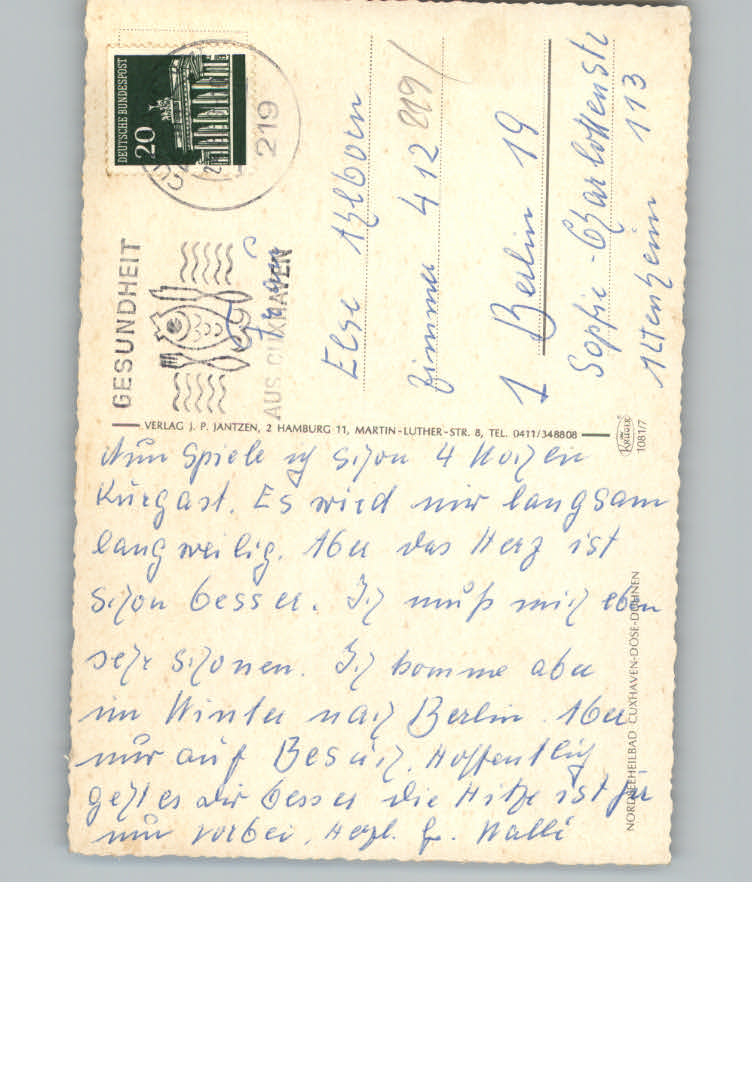 DEUTSCHE BUNDESPOST
20
219
GESUNDHEIT
AUS CUXHAVEN
Frau
Else Ahlborn
Zimmer 412
219/
1 Berlin 19
Sophie-Charlottenstr
113
Altenheim
VERLAG J. P. JANTZEN, 2 HAMBURG 11, MARTIN-LUTHER-STR. 8, TEL. 0411/348808
Krüger
1081/7
NORDSEEHEILBAD CUXHAVEN-DÖSE-DUHNEN
Nun Spiele ich Schon 4 Wochen
Kurgast. Es wird mir langsam
langweilig. Aber das Herz ist
Schon besser. Ich muß mich eben
sehr Schonen. Ich komme aber
im Winter nach Berlin. Aber
nur auf Besuch. Hoffentlich
geht es Dir besser die Hitze ist ja
nun vorbei. Herzl. Gr. Walli